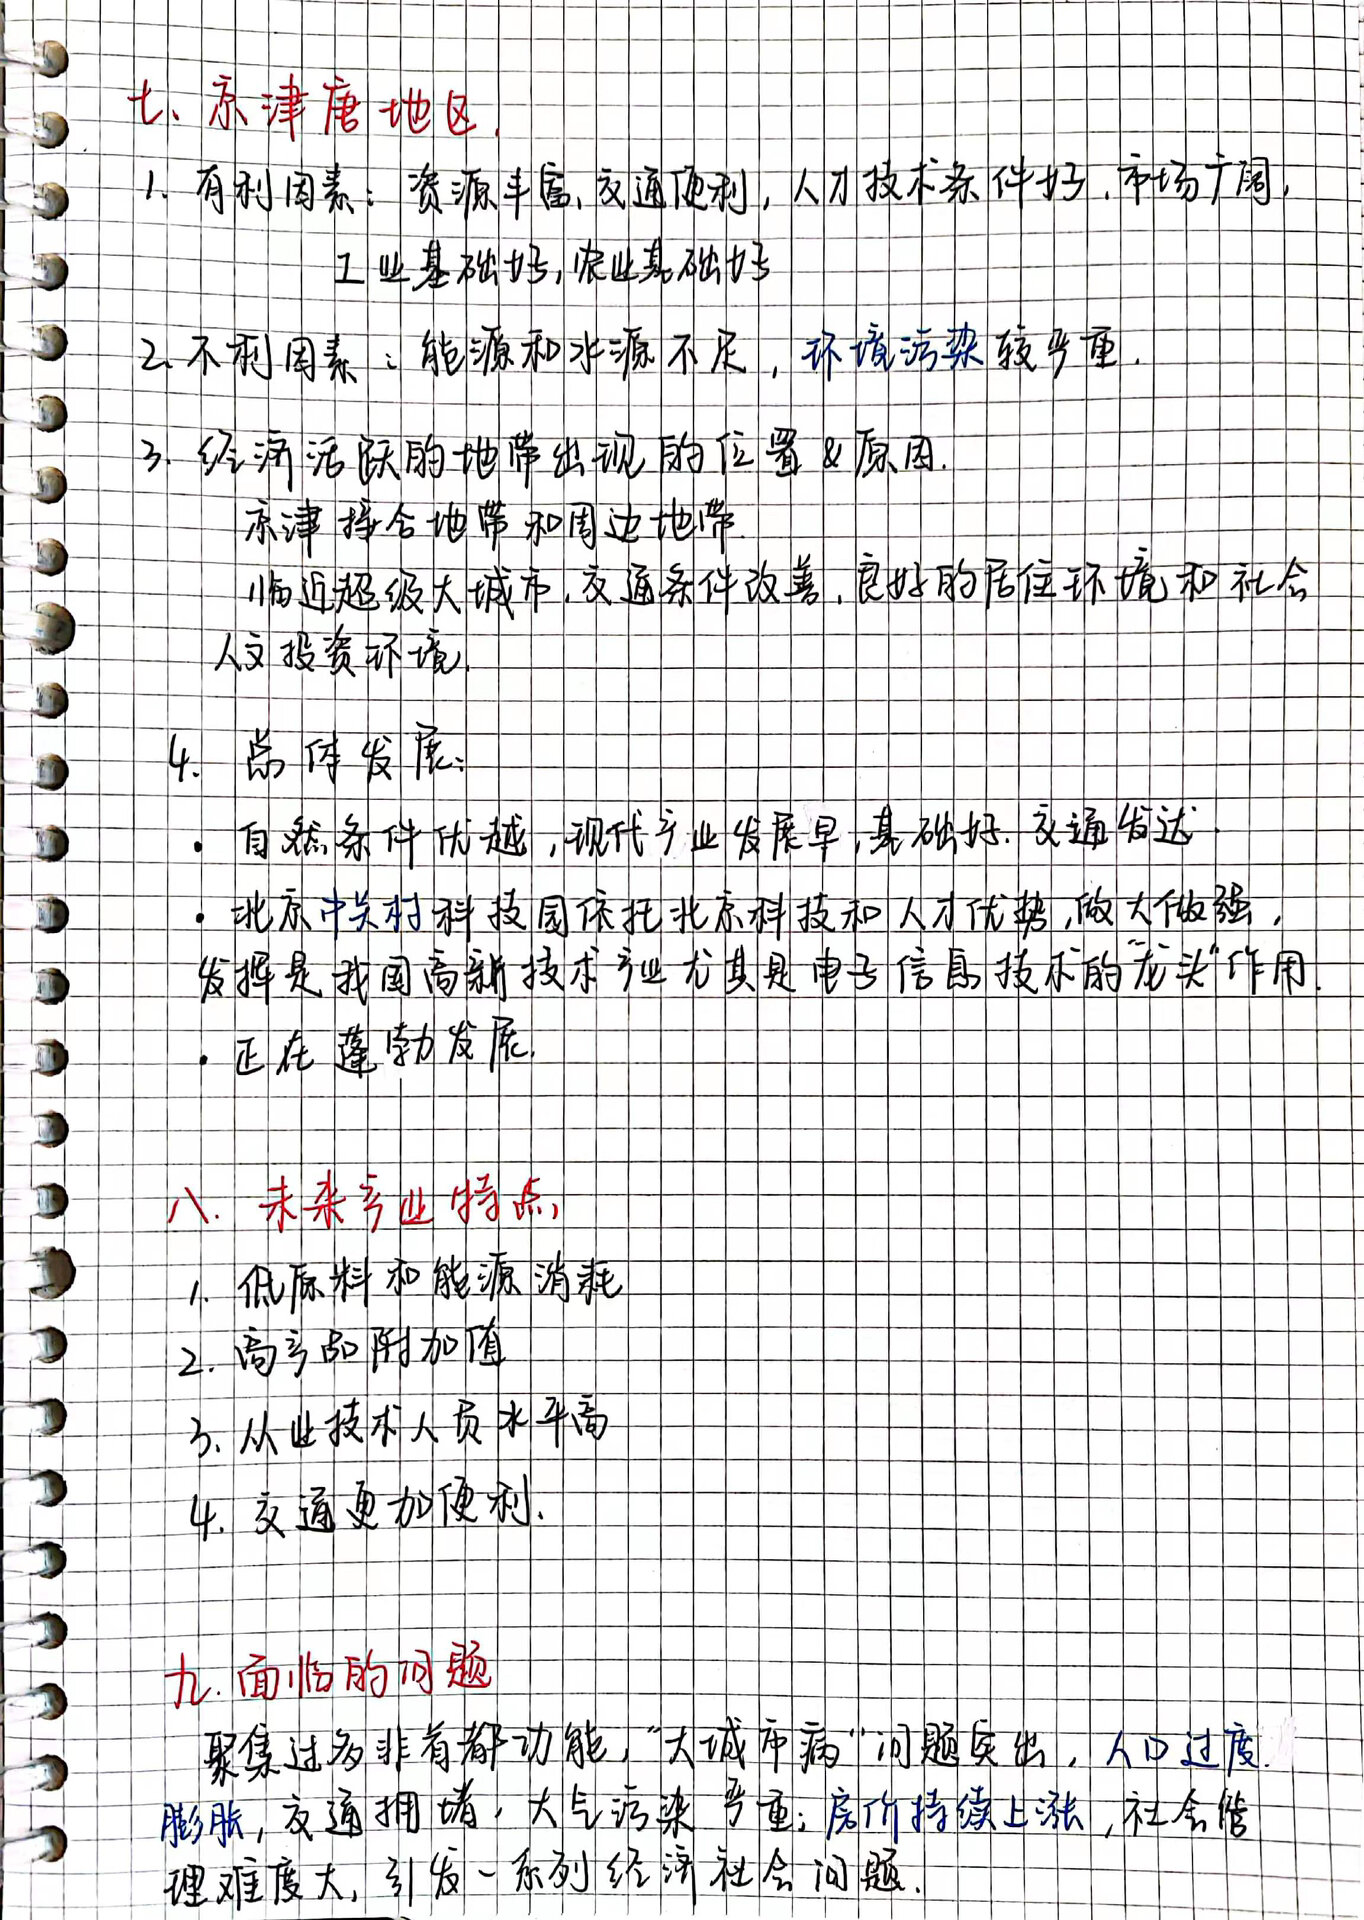 七、京津唐地区.
1. 有利因素：资源丰富、交通便利，人才技术条件好、市场广阔，
工业基础好，农业基础好
2. 不利因素：能源和水源不足，环境污染较严重.
3. 经济活跃的地带出现的位置&原因.
京津接合地带和周边地带.
临近超级大城市、交通条件改善、良好的居住环境和社会
人文投资环境.
4. 总体发展：
·自然条件优越，现代产业发展早，基础好.交通发达.
·北京中关村科技园依托北京科技和人才优势，做大做强，
发挥是我国高新技术产业尤其是电子信息技术的“龙头”作用.
·正在蓬勃发展.
八. 未来产业特点,
1. 低原料和能源消耗
2. 高产品附加值
3. 从业技术人员水平高
4. 交通更加便利.
九. 面临的问题
聚集过多非首都功能，“大城市病”问题突出，人口过度
膨胀，交通拥堵，大气污染严重；房价持续上涨，社会管
理难度大，引发一系列经济社会问题.